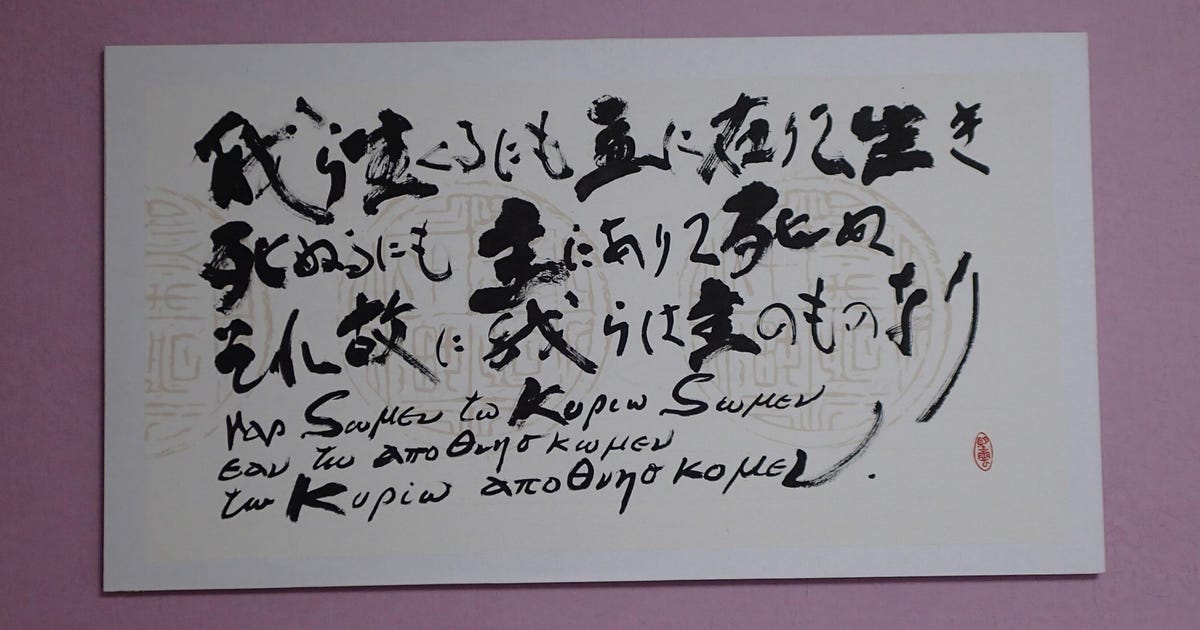 我ら生くるにも主に在りて生き
死ぬるにも主にありて死ぬ
それ故に我らは主のものなり
γαρ ζωμεν τω Κυριω ζωμεν
εαν τω αποθνησκωμεν
τω Κυριω αποθνησκομεν.